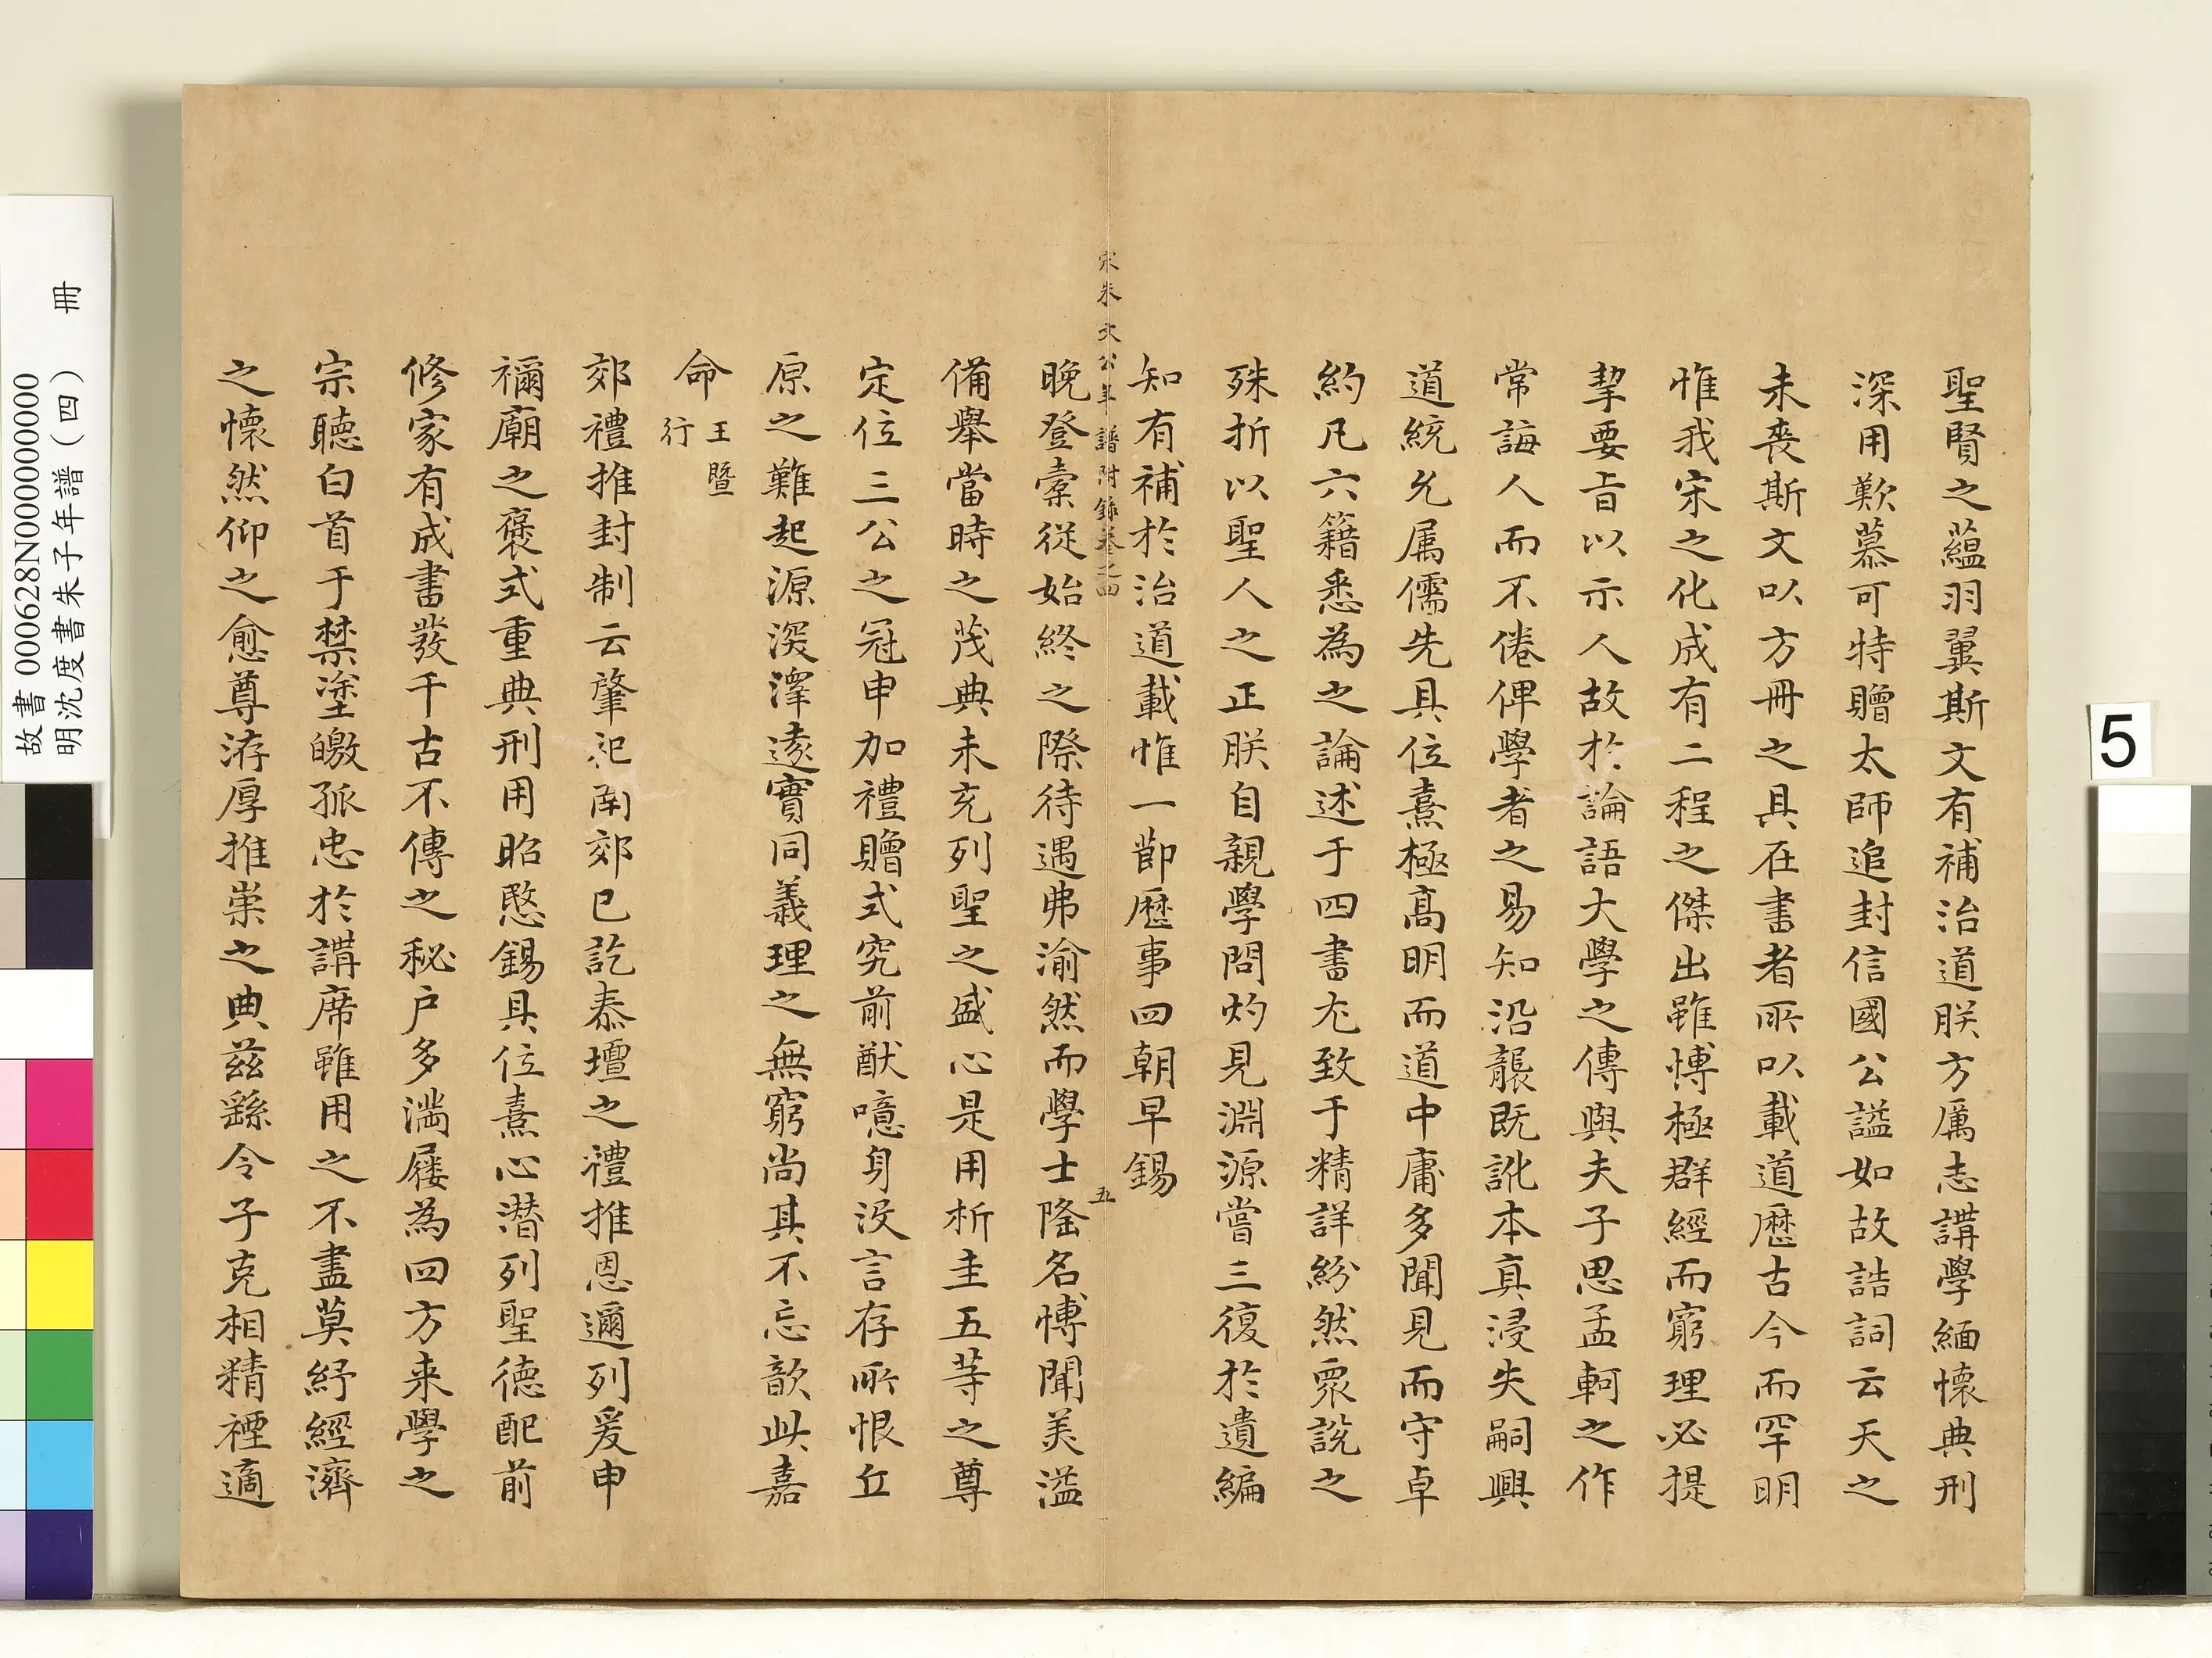 聖賢之蘊羽翼斯文有補治道朕方厲志講學緬懷典刑
深用歎慕可特贈太師追封信國公謚如故誥詞云天之
未喪斯文以方冊之具在書者所以載道歷古今而罕明
惟我宋之化成有二程之傑出雖博極群經而窮理必提
挈要旨以示人故於論語大學之傳與夫子思孟軻之作
常誨人而不倦俾學者之易知知沿襲既訛本真浸失嗣興
道統允属儒先具位熹極高明而道中庸多聞見而守卓
約凡六籍悉為之論述于四書尤致于精詳紛然衆說之
殊折以聖人之正朕自親學問灼見淵源嘗三復於遺編
知有補於治道載惟一節歷事四朝早錫
宋朱文公年譜附錄卷之四
五
晚登橐從始終之際待遇弗渝然而學士隆名博聞美溢
備舉當時之茂典未充列聖之盛心是用析圭五等之尊
定位三公之冠申加禮贈式究前猷噫身没言存所恨丘
原之難起源深澤遠實同義理之無窮尚其不忘歆此嘉
命
王暨
行
郊禮推封制云肇祀南郊已訖泰壇之禮推恩邇列爰申
禰廟之褒式重典刑用昭愍錫具位熹心潛列聖德配前
修家有成書發千古不傳之秘户多滿屨為四方来學之
宗聽白首于禁塗皦孤忠於講席雖用之不盡莫紓經濟
之懷然仰之愈尊洊厚推崇之典兹繇令子克相精禋適
故書000628N000000000
明沈度書朱子年譜(四) 冊
5